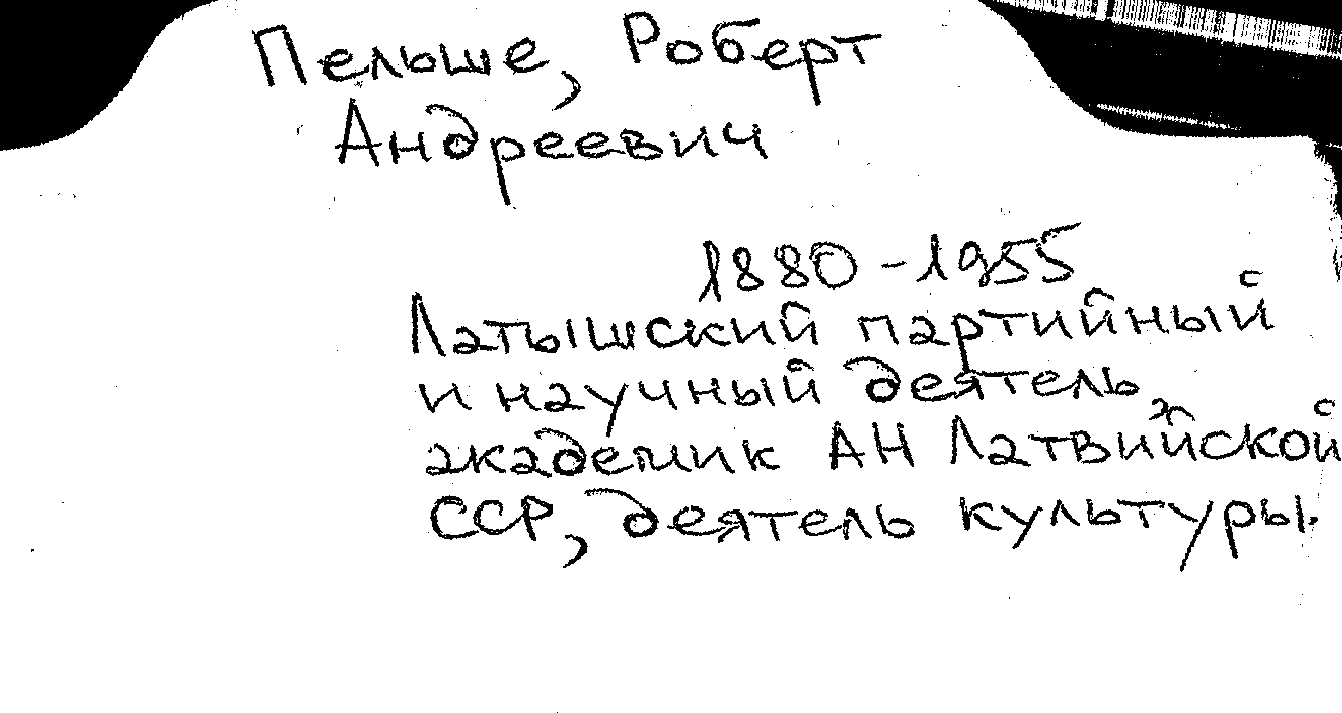 Пельше, Роберт
Андреевич
1880-1955
Латышский партийный
и научный деятель,
академик АН Латвийской
ССР, деятель культуры.